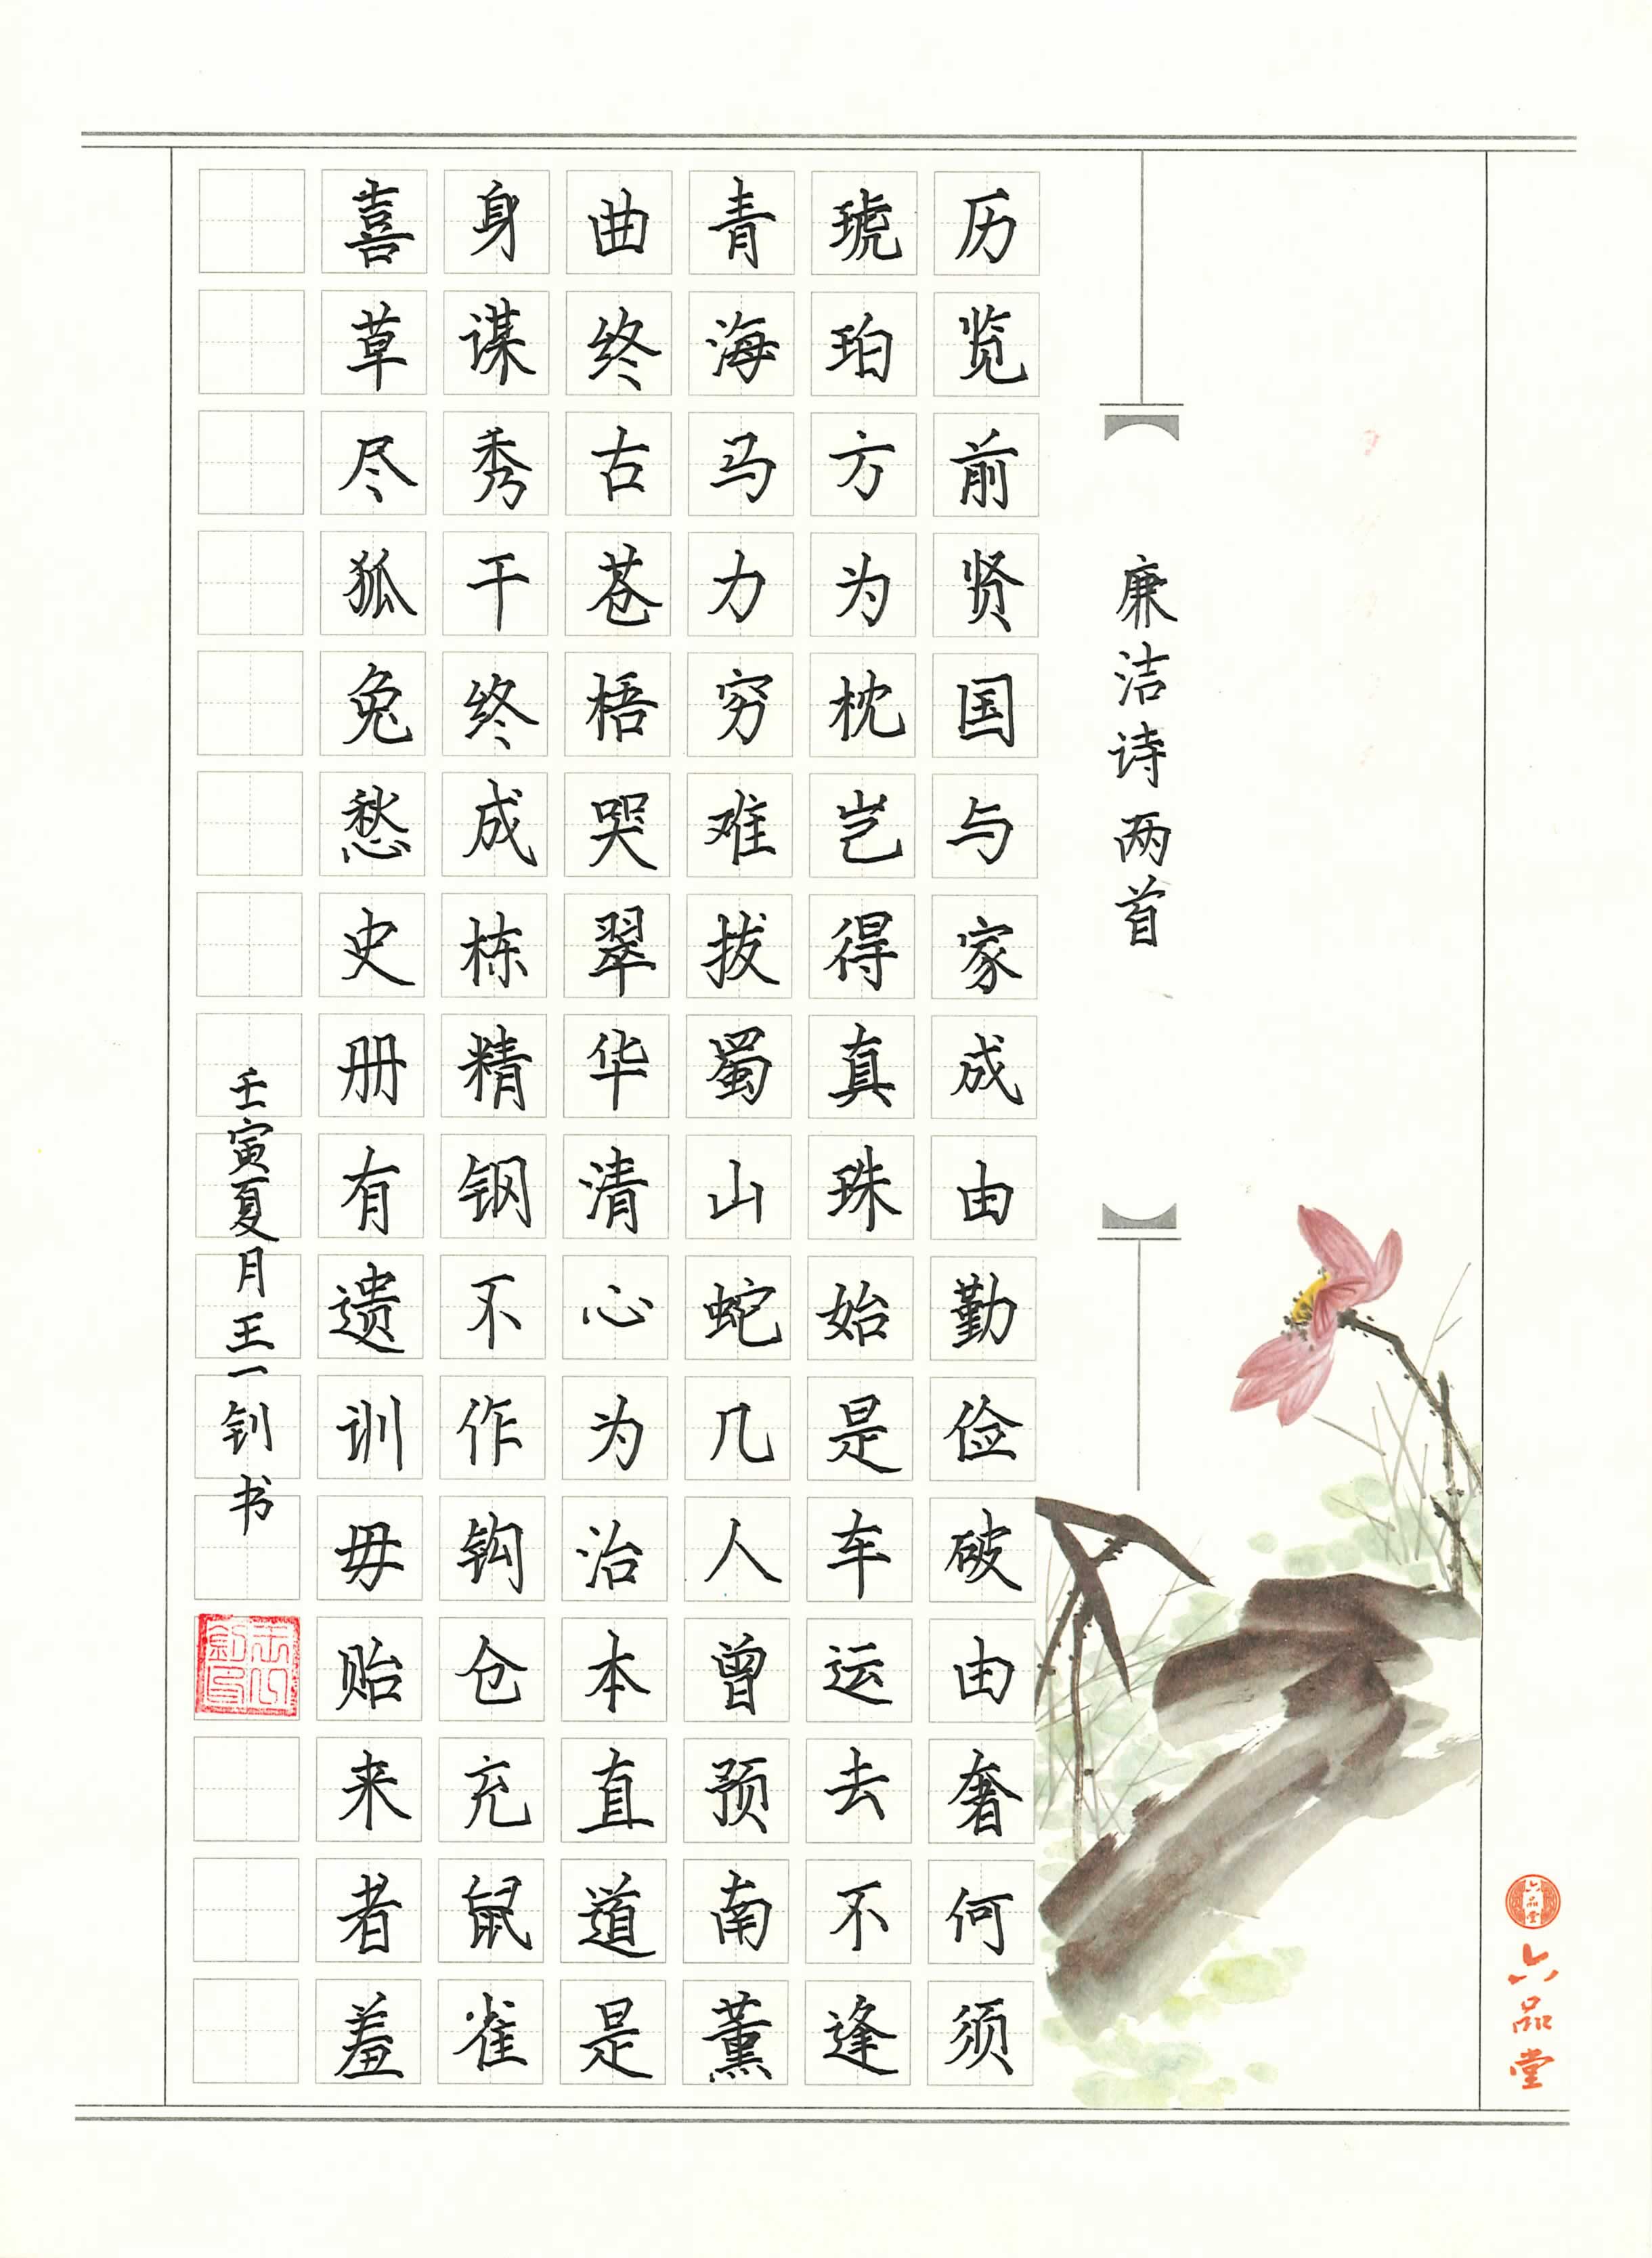 廉洁诗两首
历览前贤国与家成由勤俭破由奢何须
琥珀方为枕岂得真珠始是车运去不逢
青海马力穷难拔蜀山蛇几人曾预南薰
曲终古苍梧哭翠华清心为治本直道是
身谋秀干终成栋精钢不作钩仓充鼠雀
喜草尽狐兔愁史册有遗训毋贻来者羞
壬寅夏月王一钊书
六品堂
六品堂